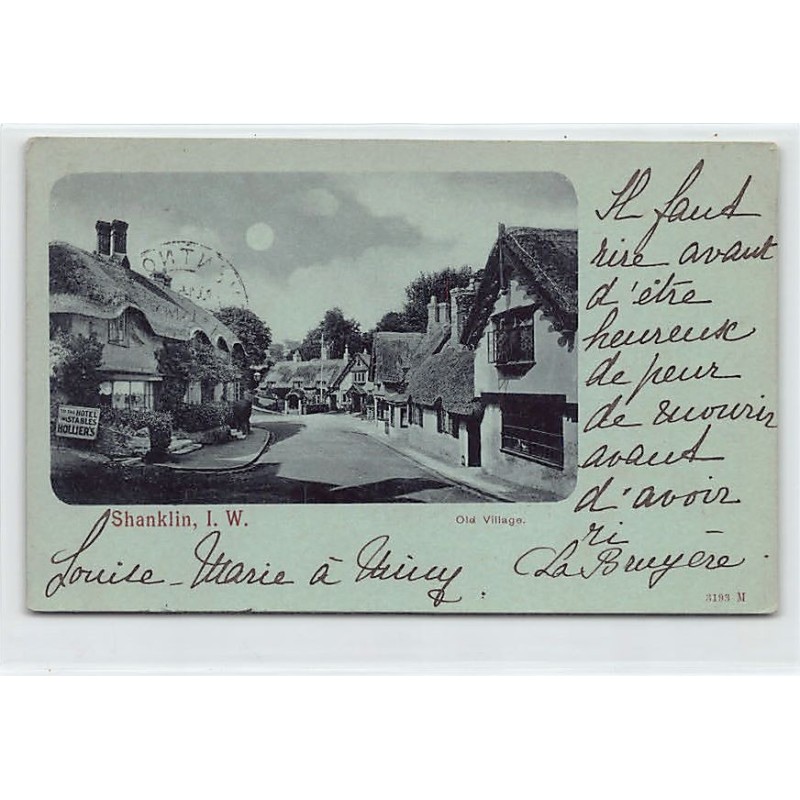 Il faut
rire avant
d'être
heureux
de peur
de mourir
avant
d'avoir
ri
La Bruyère.
TO THE HOTEL
STABLES
HOLLIER'S
Shanklin, I. W.
Old Village.
Louise-Marie à Mimy.
3193 M